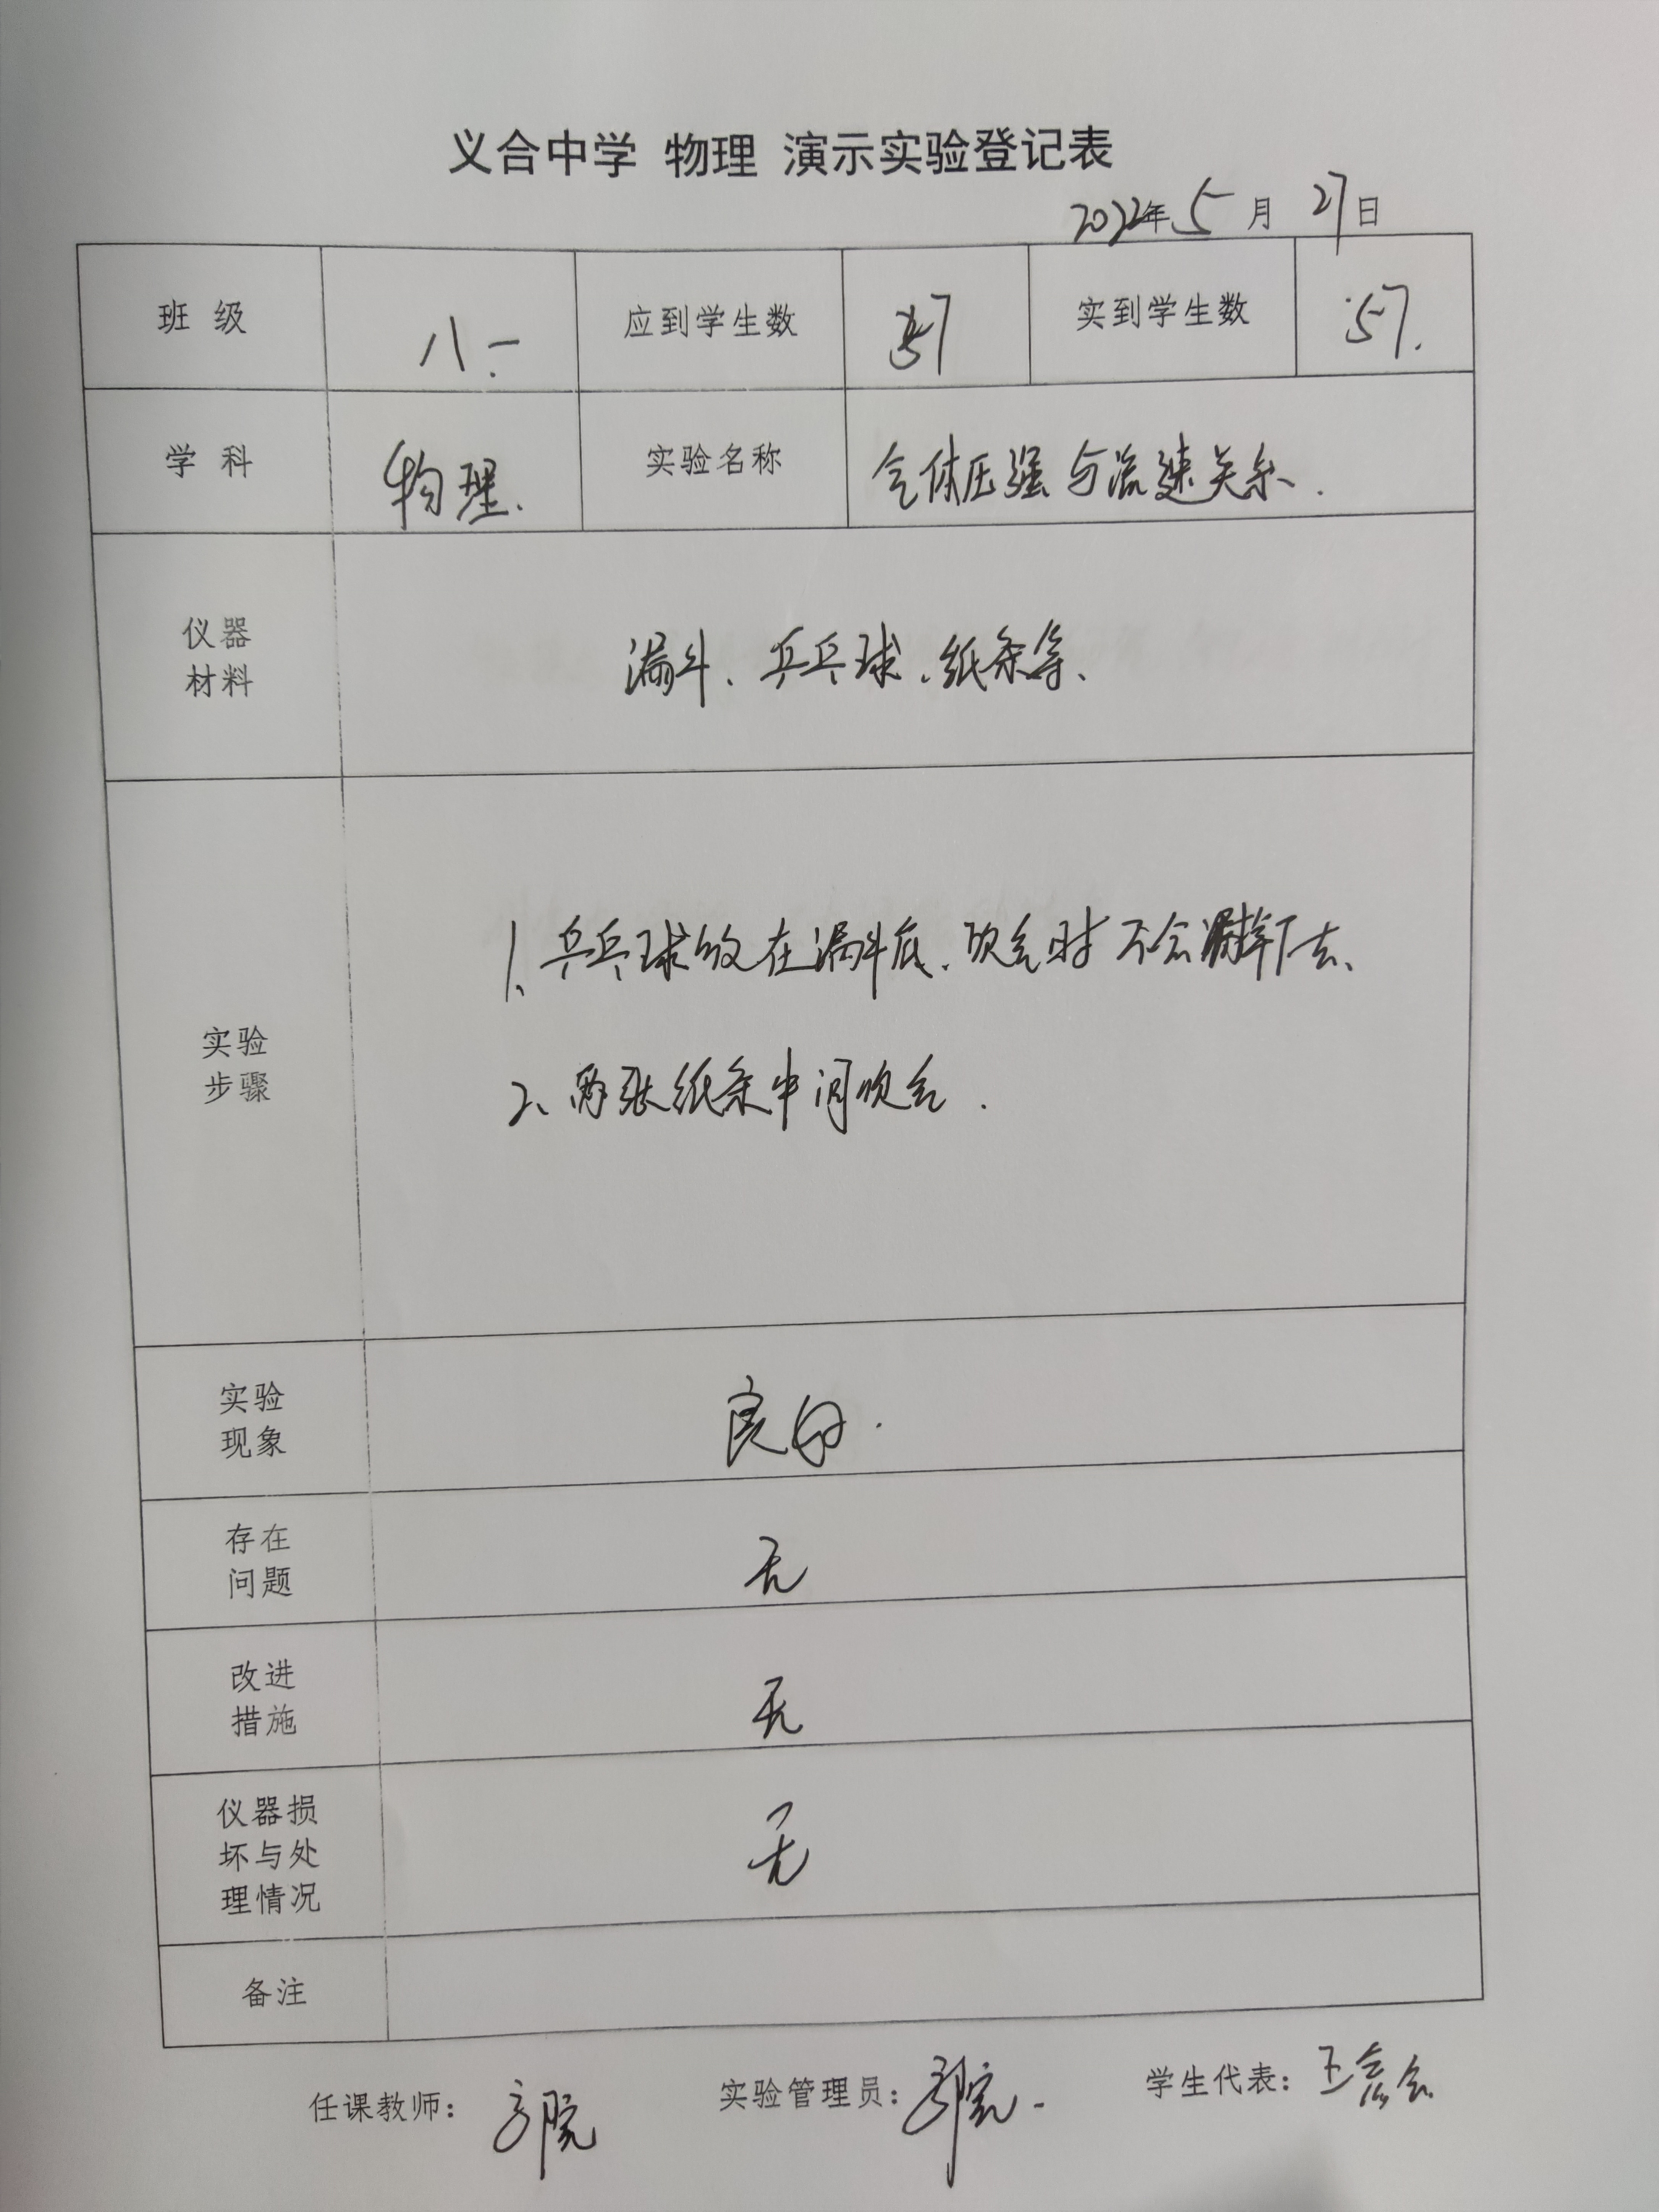 义合中学 物理 演示实验登记表
2022年 5 月 27日
班 级 八.一 应到学生数 57 实到学生数 57.
学 科 物理. 实验名称 气体压强与流速关系.
仪器
材料
漏斗、乒乓球、纸条等、
实验
步骤
1、乒乓球放在漏斗底、吹气时不会掉下去、
2、两张纸条中间吹气.
实验
现象
良好.
存在
问题
无
改进
措施
无
仪器损
坏与处
理情况
无
备注
任课教师： 实验管理员： 学生代表：王